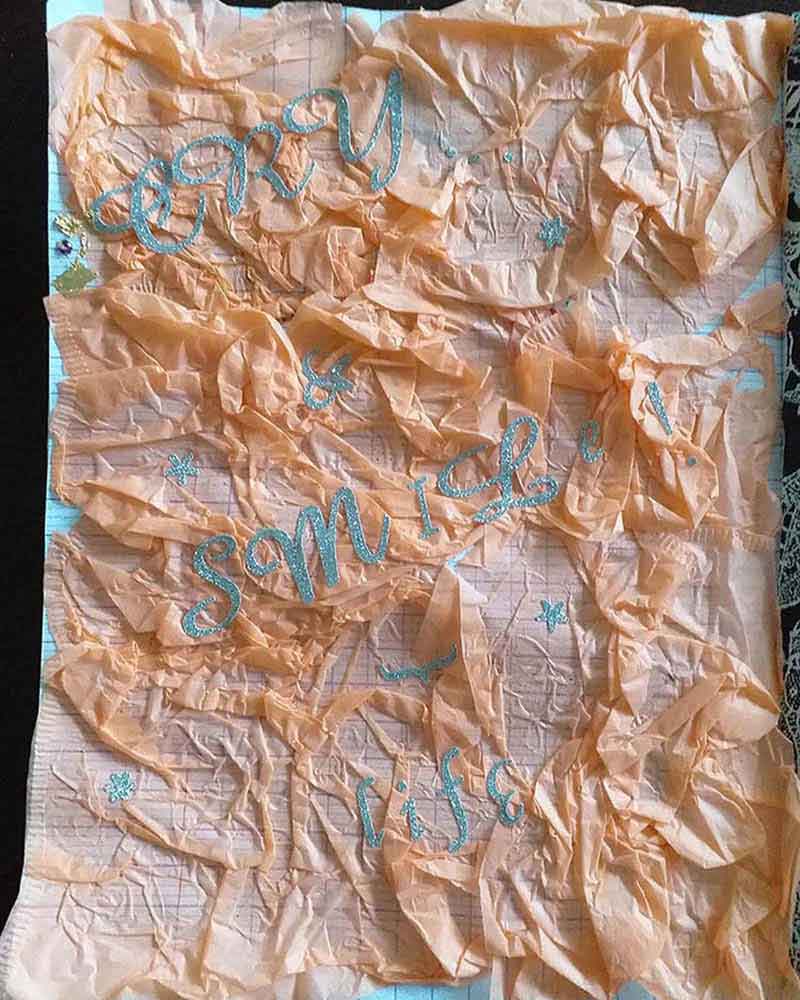 CRY...
&
SMiLe!
life